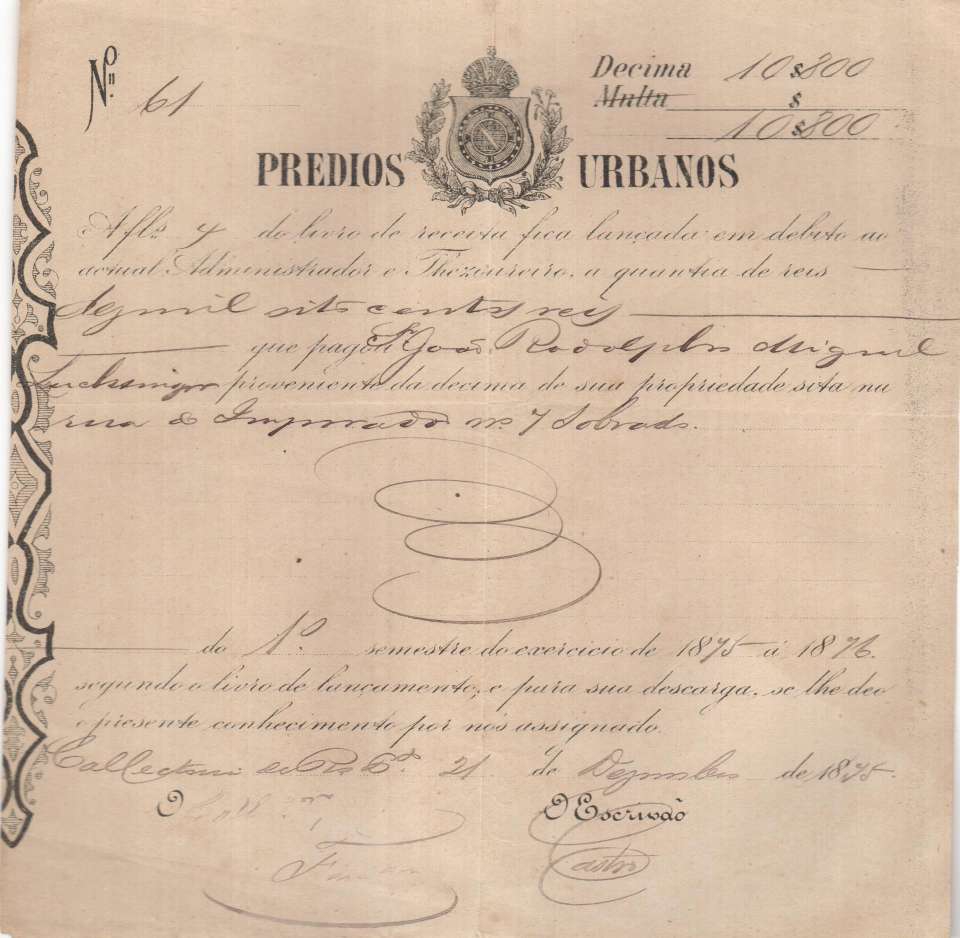 Nº 61
Decima 10$800
Multa $
10$800
PREDIOS URBANOS
A fls 4 do livro de receita fica lançada em debito ao
actual Administrador e Thezoureiro, a quantia de reis
Dez mil oito centos reis
que pagou Sr João Rodolpho Miguel
proveniente da decima de sua propriedade sita na
rua do Imperador nº 7 Sobrado.
do 1º semestre do exercicio de 1875 á 1876.
segundo o livro de lançamento, e para sua descarga, se lhe deo
o presente conhecimento por nós assignado.
21 de Dezembro de 1875.
O
O Escrivão
Castro